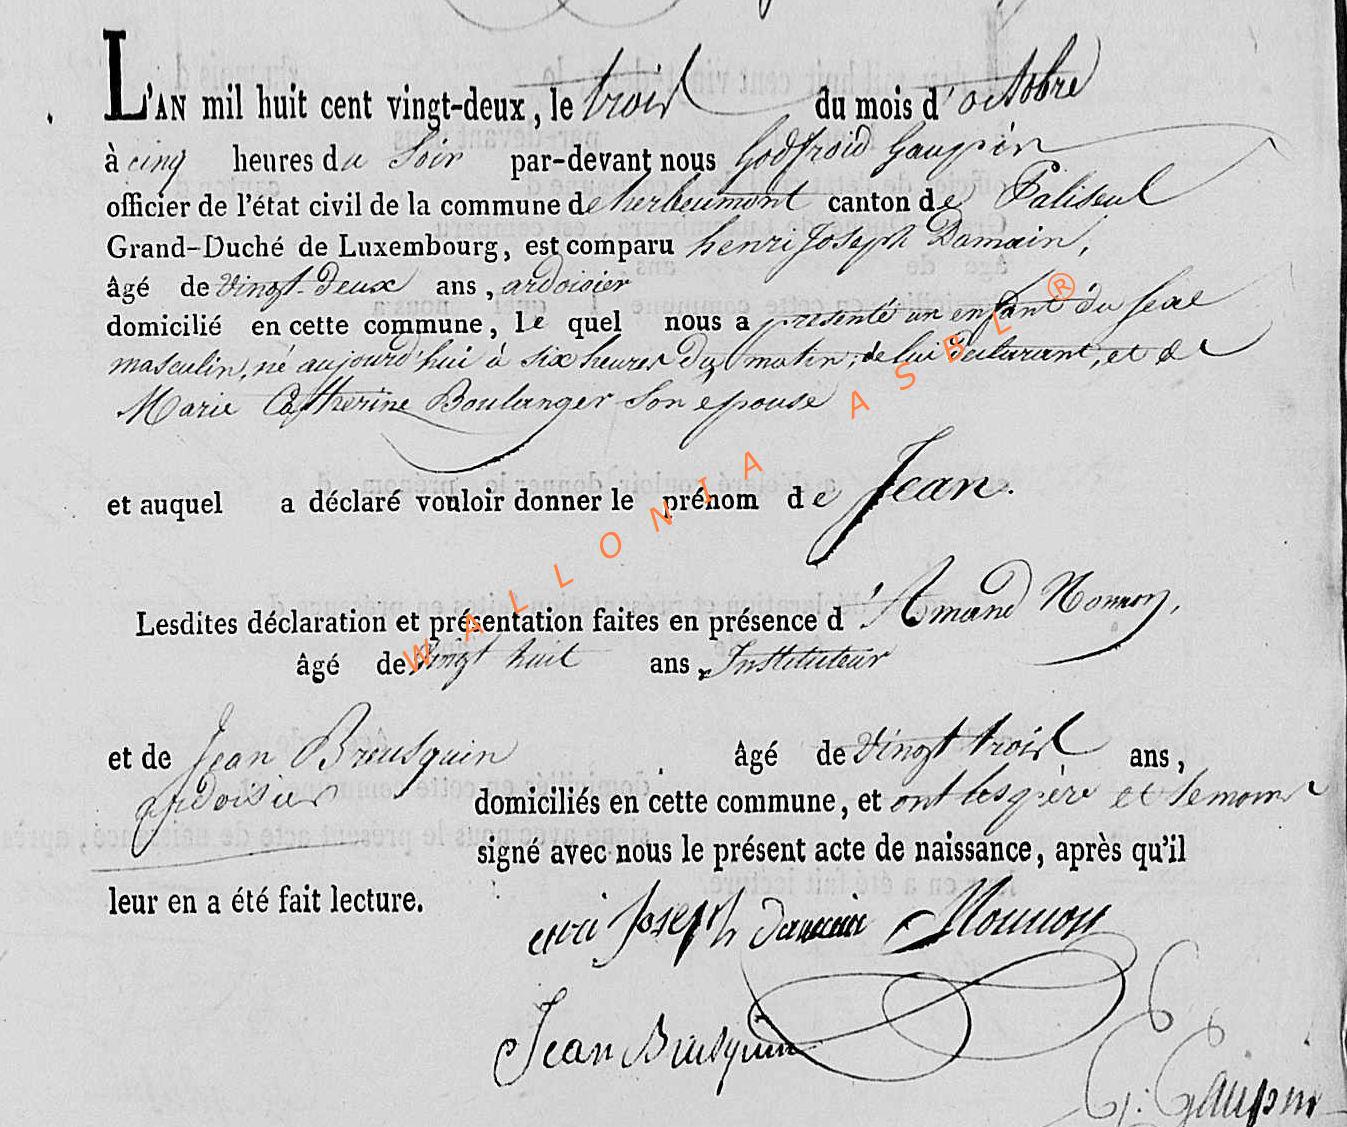 L'AN mil huit cent vingt-deux, le trois du mois d'octobre
à cinq heures du Soir par-devant nous Godfroid Gaupin
officier de l'état civil de la commune de herbeumont canton de Paliseul
Grand-Duché de Luxembourg, est comparu henri Joseph Damain,
âgé de vingt-deux ans, ardoisier
domicilié en cette commune, le quel nous a presenté un enfant du sexe
masculin, né aujourd'hui à six heures du matin, de lui déclarant, et de
Marie Catherine Boulanger son epouse
et auquel a déclaré vouloir donner le prénom de Jean.
Lesdites déclaration et présentation faites en présence d'Amand
âgé de vingt huit ans, Instituteur
et de Jean Brusquin âgé de vingt trois ans,
ardoisier domiciliés en cette commune, et ont les père et temoins
signé avec nous le présent acte de naissance, après qu'il
leur en a été fait lecture.
Joseph damain
Jean Brusquin
G: Gaupin
WALLONIA ASBL ®